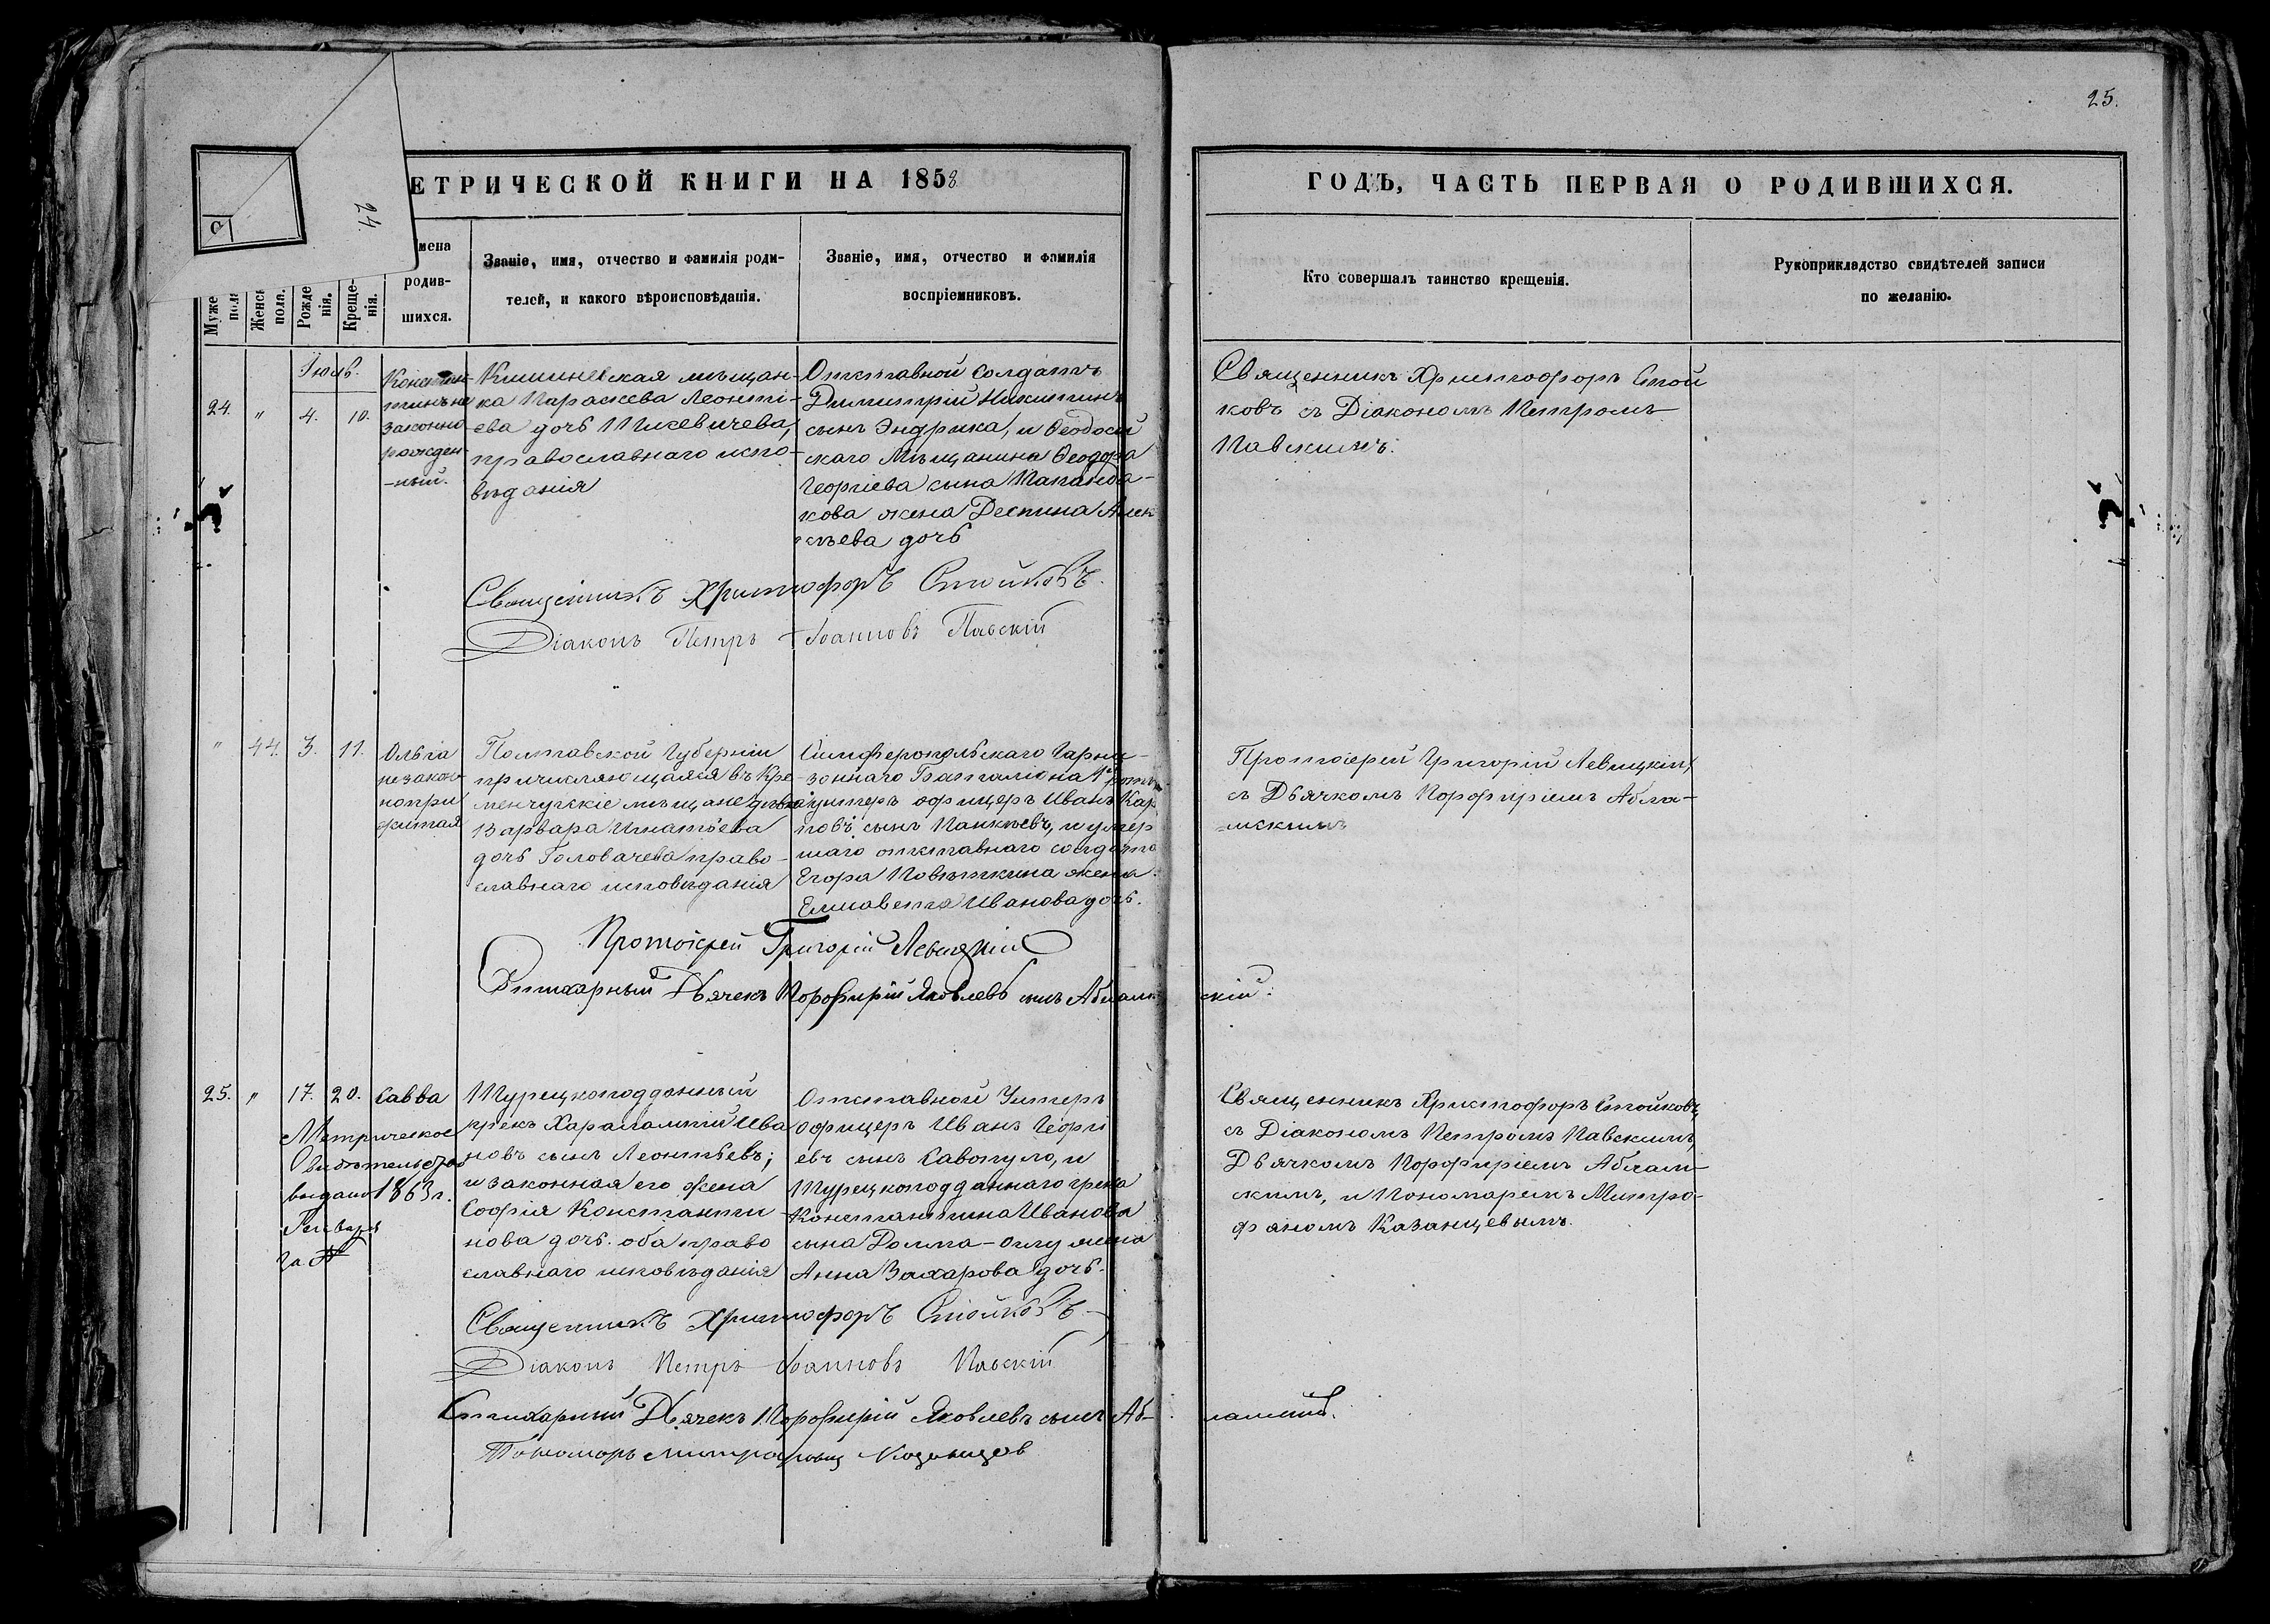 25.
24.
ЕТРИЧЕСКОЙ КНИГИ НА 1858
ГОДЪ, ЧАСТЬ ПЕРВАЯ О РОДИВШИХСЯ.
Муже
пола
Женск
пола.
Рожде
нія.
Креще-
нія.
мена
родив-
шихся.
Званіе, имя, отчество и фамилія роди-
телей, и какого вѣроисповѣданія.
Званіе, имя, отчество и фамилія
воспріемниковъ.
Кто совершалъ таинство крещенія.
Рукоприкладство свидѣтелей записи
по желанію.
Іюль.
24. " 4. 10.
Констан-
тинъ не
законно
рожден-
-ный.
Кишиневская мѣщан-
ка Параскева Леонті-
ева дочь
православнаго испо-
вѣданія
Отставной солдатъ
Димитрій Никитинъ
сынъ Эндрика, и Ѳеодосій
скаго мѣщанина Ѳеодора
Георгіева сына
кова жена Деспина Алек
сѣева дочь
Священникъ Христофоръ Стой
ковъ съ Діакономъ Петромъ
Павскимъ.
Священникъ Христофоръ Стойковъ.
Діаконъ Петръ Іоанновъ Павскій
" 44. 3. 11.
Ольга
незакон-
нопри
житая
Полтавской Губерніи
причисляющаяся въ Кре-
менчугскіе мѣщане дѣвка
Варвара Игнатьева
дочь Головачева право-
славнаго исповѣданія
Симферопольскаго Гарни-
зоннаго Баталіона 1й роты
унтеръ офицеръ Иванъ Кар
повъ сынъ Панкѣевъ, и умер
шаго отставнаго солдата
Егора Повѣткина жена
Елисавета Иванова дочь.
Протоіерей Григорій Левицкій,
съ Дьячкомъ Порфиріемъ Абла-
мскимъ
Протоіерей Григорій Левицкій
Стихарный Дьячекъ Порфирій Яковлевъ сынъ Аблам
скій.
25. " 17. 20. Савва
Метрическое
Свидѣтельство
выдано 1863 г.
Генваря
Турецкоподданный
грекъ Харалампій Ива
новъ сынъ Леонтьевъ;
и законная его жена
Софія Константи-
нова дочь. оба право
славнаго исповѣданія
Отставной Унтеръ
офицеръ Иванъ Георгі
евъ сынъ Савопуло, и
Турецкоподданнаго грека
Константина Иванова
сына Долма-оглу жена
Анна Захарова дочь.
Священникъ Христофоръ Стойковъ,
съ Діакономъ Петромъ Павскимъ,
Дьячкомъ Порфиріемъ Аблам-
скимъ, и Пономаремъ Митро-
фаномъ Казанцевымъ.
Священникъ Христофоръ Стойковъ
Діаконъ Петръ Іоанновъ Павскій
Стихарный Дьячекъ Порфирій Яковлевъ сынъ Аб-
ламскій.
Пономарь Митрофанъ Казанцев